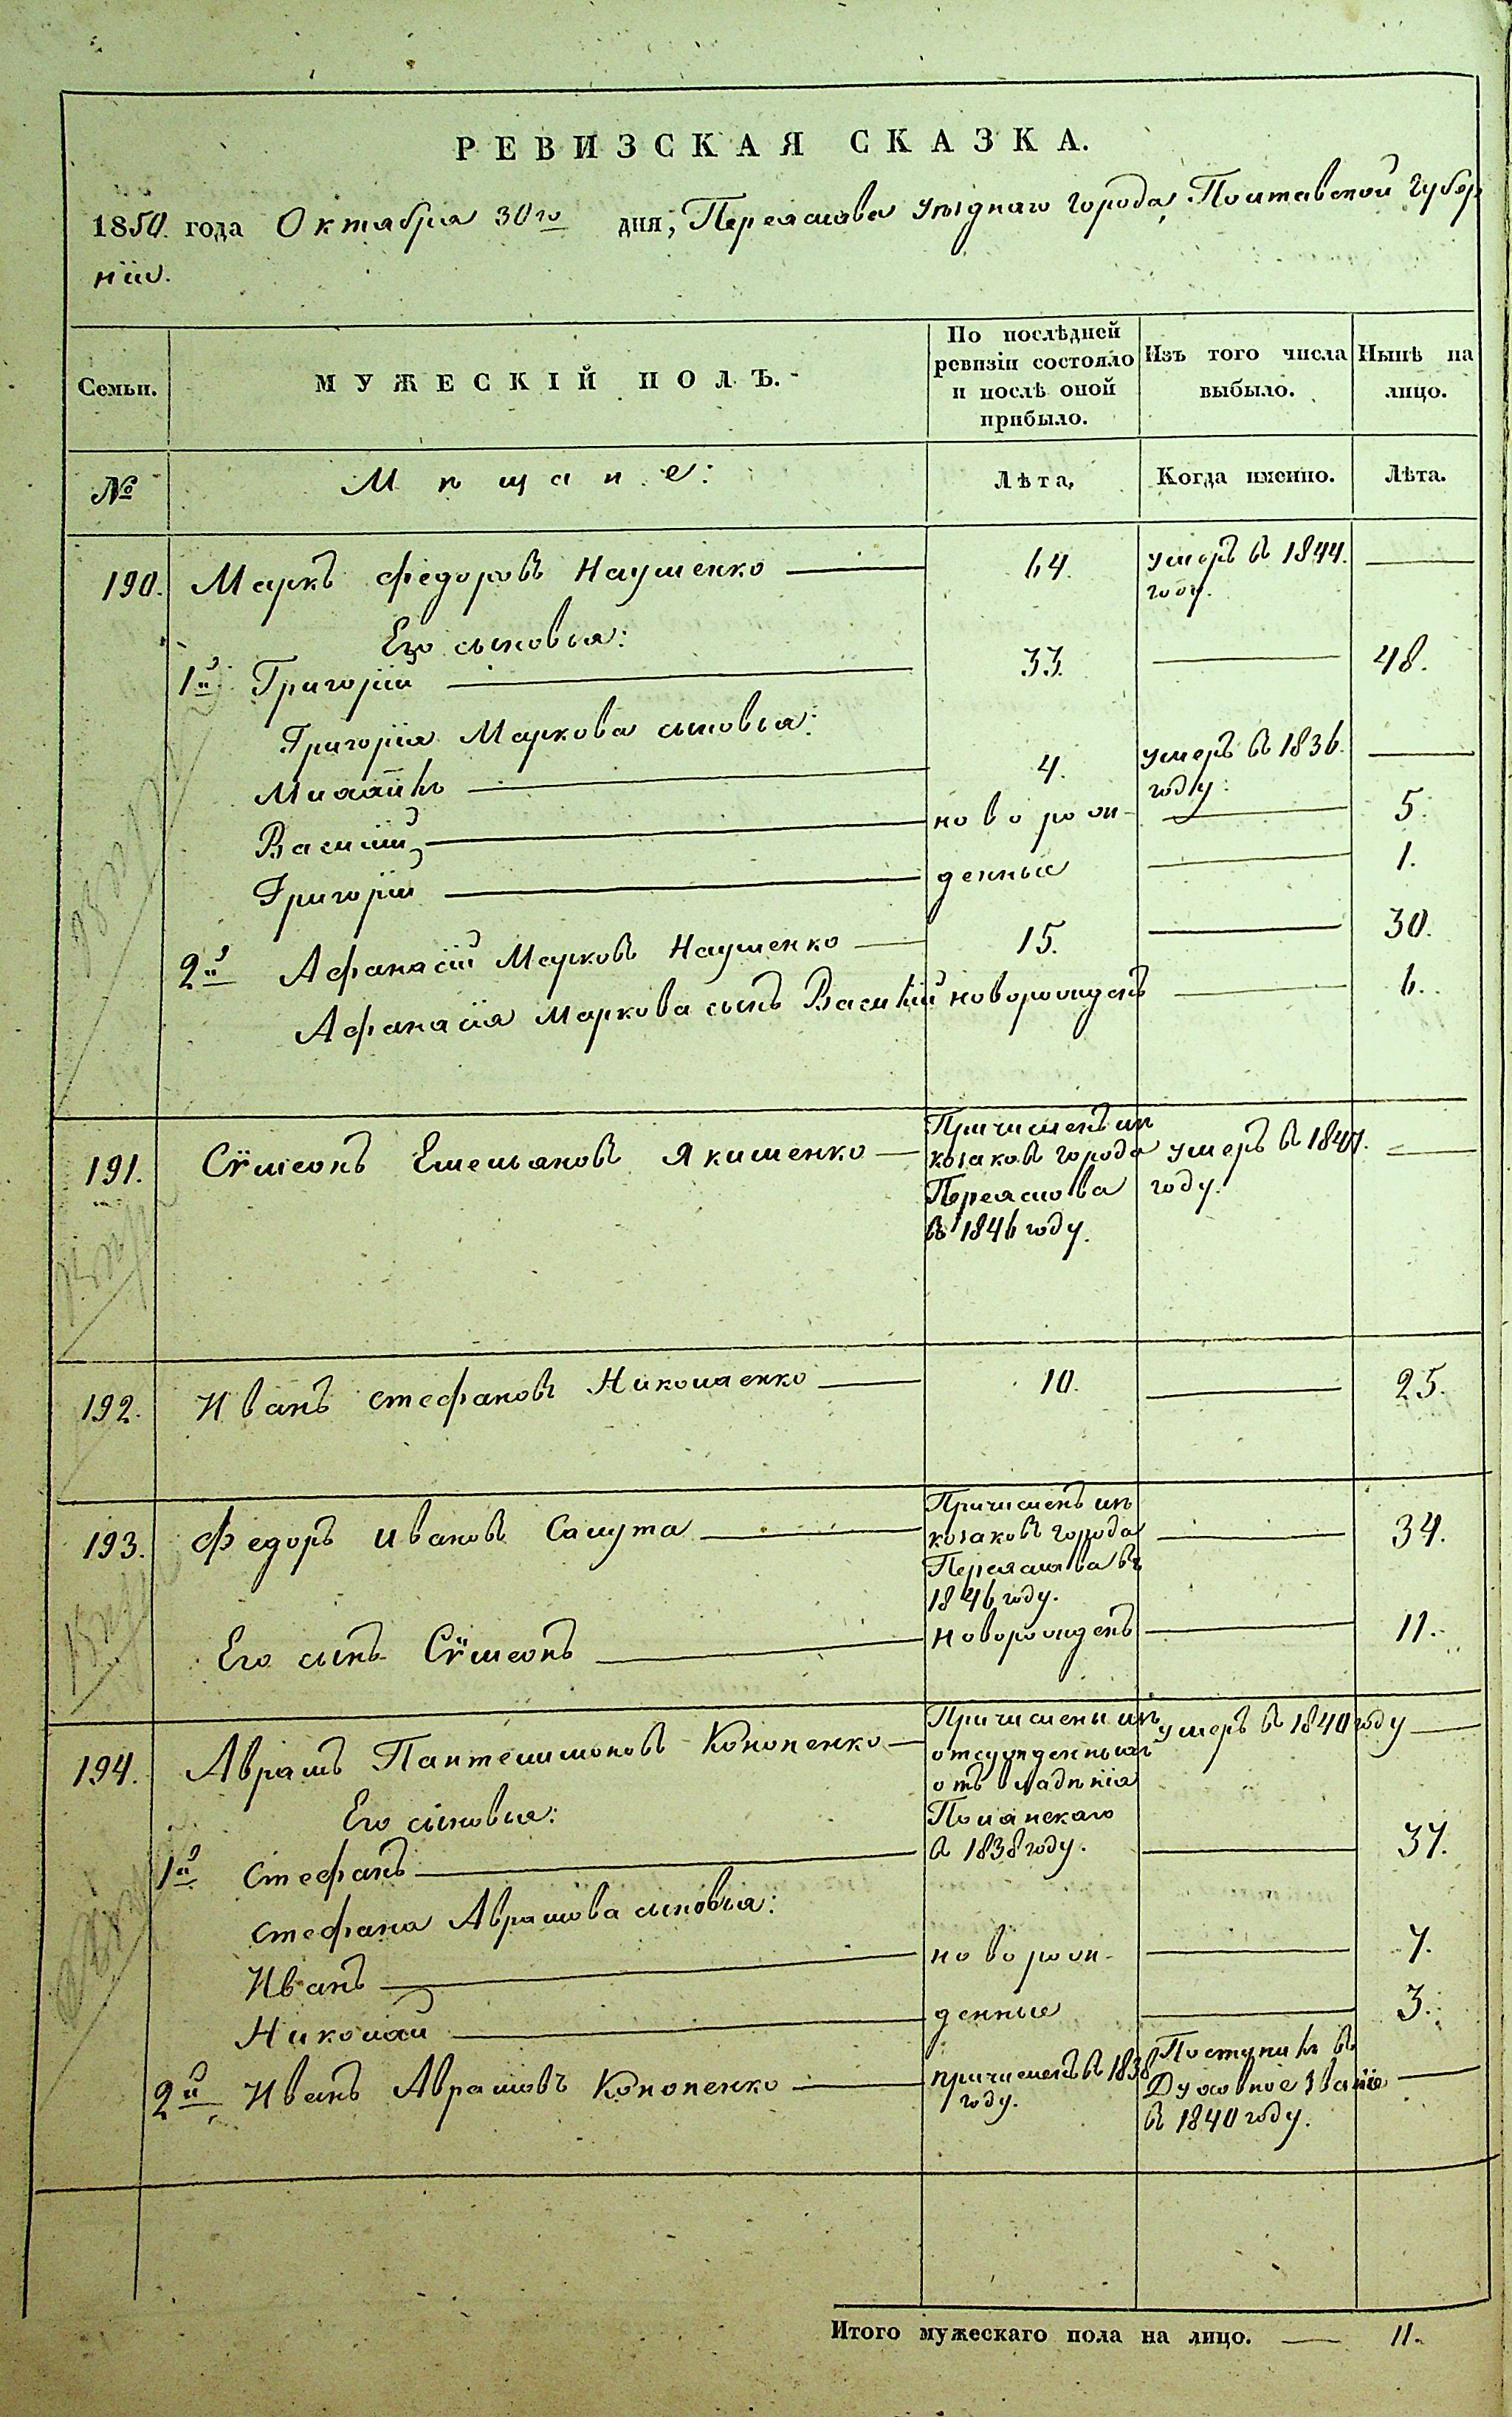 РЕВИЗСКАЯ СКАЗКА.
1850. года Октября 30го дня, Переяслава уѣзднаго города, Полтавской губер
ніи.
Семьи. МУЖЕСКІЙ ПОЛЪ. По послѣдней ревизіи состояло и послѣ оной прибыло. Изъ того числа выбыло. Нынѣ на лицо.
№ Мѣщане: Лѣта, Когда именно. Лѣта.
190. Маркъ Федоровъ Наушенко — 64. умеръ въ 1844. году. —
Его сыновья:
1й Григорій — 33. — 48.
Григорія Маркова сыновья:
Михаилъ — 4. умеръ въ 1836. году. —
Василій — новорож- — 5.
Григорій — денные — 1.
2й Афанасій Марковъ Наушенко — 15. — 30.
Афанасія Маркова сынъ Василій новорожденъ — 6.
191. Сѵмеонъ Емельяновъ Якименко — Причисленъ изъ умеръ въ 1847. —
козаковъ города году.
Переяслова
въ 1846 году.
192. Иванъ Стефановъ Николаенко — 10. — 25.
193. Федоръ Ивановъ Салута — Причисленъ изъ — 34.
козаковъ города
Переяслава въ
1846 году.
Его сынъ Сѵмеонъ — новорожденъ — 11.
194. Аврамъ Пантелимоновъ Кононенко — Причислены изъ умеръ въ 1840 году —
отсужденныхъ
отъ владѣнія
Его сыновья: 
1й Стефанъ — въ 1838 году. — 37.
Стефана Аврамова сыновья:
Иванъ — новорож- — 7.
Николай — денные — 3.
2й Иванъ Аврамовъ Кононенко — причисленъ въ 1838 году. Поступилъ въ Духовное званіе въ 1840 году. —
Итого мужескаго пола на лицо. — 11.